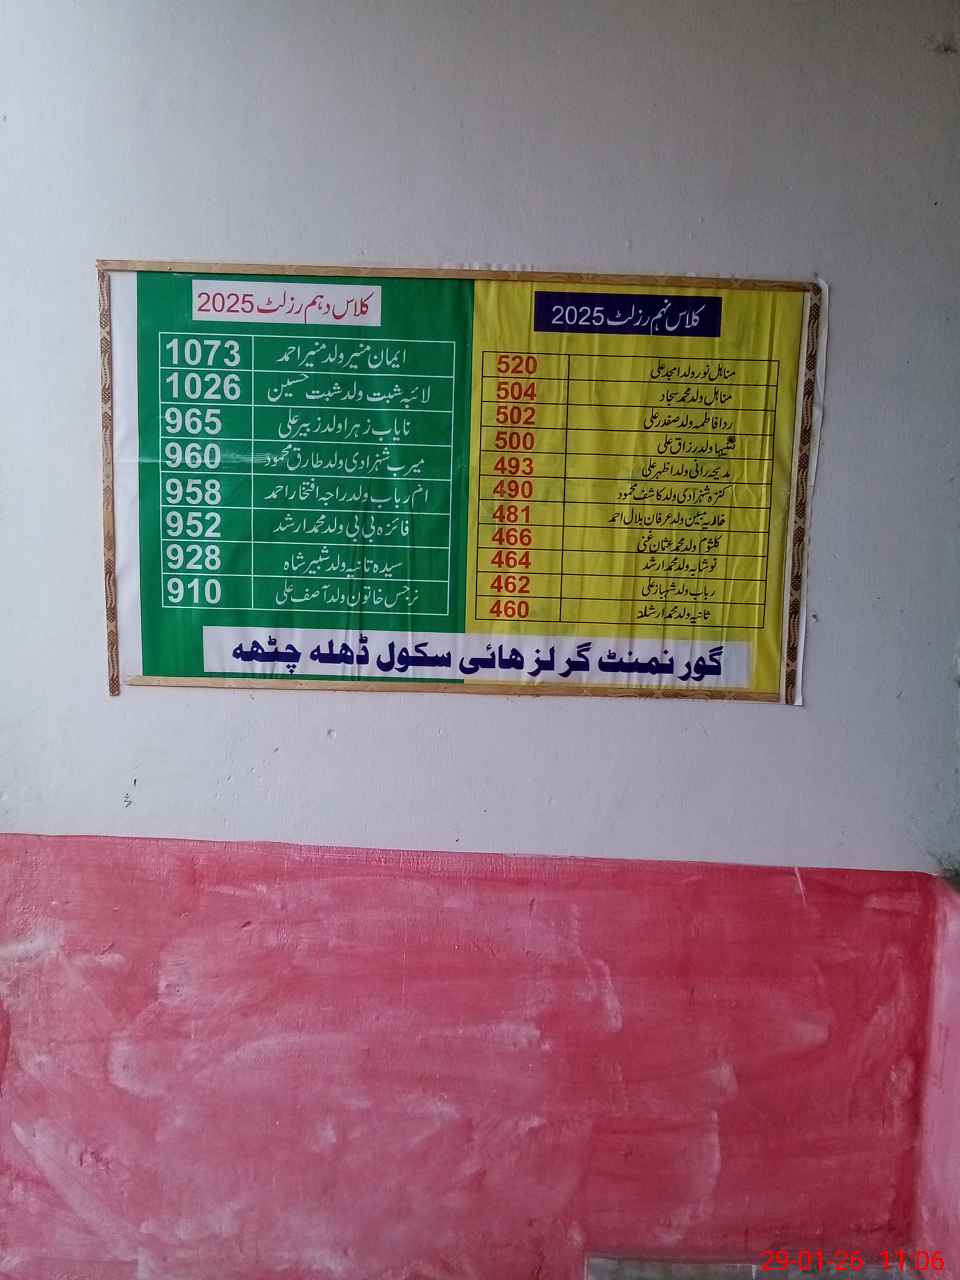 کلاس نہم رزلٹ 2025
مناہل نور ولد امجد علی 520
مناہل ولد محمد سجاد 504
ردا فاطمہ ولد صفدر علی 502
ولد رزاق علی 500
مدیحہ رانی ولد اظہر علی 493
کنزہ شہزادی ولد کاشف محمود 490
ولد عرفان بلال احمد 481
کلثوم ولد محمد عثمان غنی 466
نوشابہ ولد محمد ارشد 464
رباب ولد شہباز علی 462
ثانیہ ولد محمد ارشد 460
کلاس دہم رزلٹ 2025
ایمان منیر ولد منیر احمد 1073
لائبہ شبت ولد شبت حسین 1026
نایاب زہرا ولد زبیر علی 965
میرب شہزادی ولد طارق محمود 960
انم رباب ولد راجہ افتخار احمد 958
فائزہ بی بی ولد محمد ارشد 952
سیدہ ثانیہ ولد شبیر شاہ 928
نرجس خاتون ولد آصف علی 910
گورنمنٹ گرلز ھائی سکول ڈھلہ چٹھہ
29-01-26 11:06